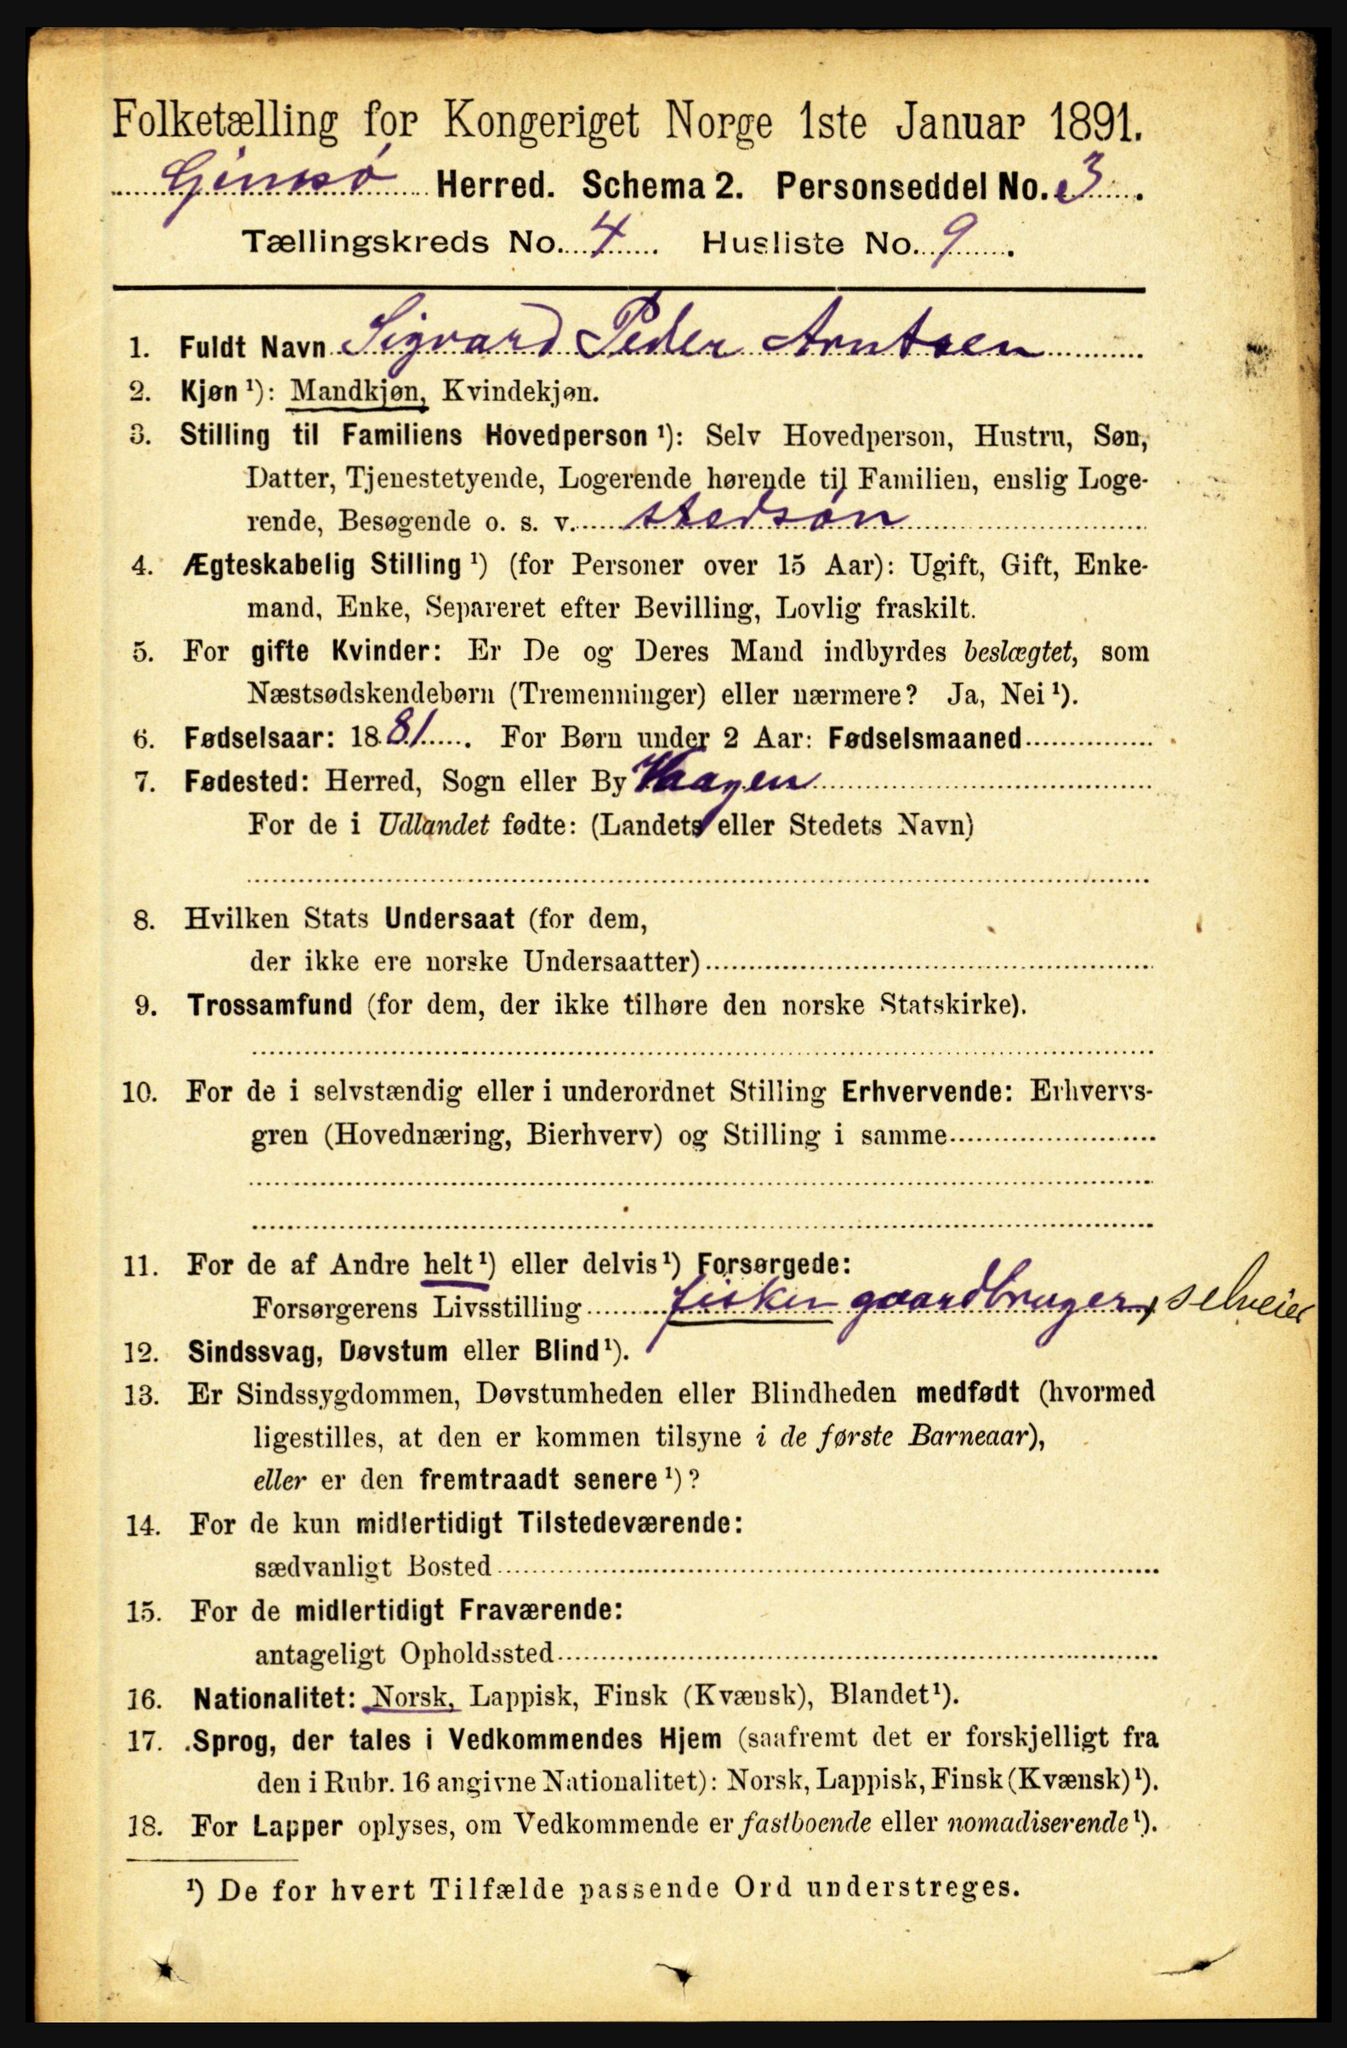 Folketælling for Kongeriget Norge 1ste Januar 1891.
Gimsø Herred. Schema 2. Personseddel No. 3.
Tællingskreds No. 4. Husliste No. 9.
1. Fuldt Navn Sigvard Peder Arntsen
2. Kjøn ¹): Mandkjøn, Kvindekjøn.
3. Stilling til Familiens Hovedperson ¹): Selv Hovedperson, Hustru, Søn,
Datter, Tjenestetyende, Logerende hørende til Familien, enslig Loge-
rende, Besøgende o. s. v. stedsøn
4. Ægteskabelig Stilling ¹) (for Personer over 15 Aar): Ugift, Gift, Enke-
mand, Enke, Separeret efter Bevilling, Lovlig fraskilt.
5. For gifte Kvinder: Er De og Deres Mand indbyrdes beslægtet, som
Næstsødskendebørn (Tremenninger) eller nærmere? Ja, Nei ¹).
6. Fødselsaar: 1881. For Børn under 2 Aar: Fødselsmaaned
7. Fødested: Herred, Sogn eller By Vaagen
For de i Udlandet fødte: (Landets eller Stedets Navn)
8. Hvilken Stats Undersaat (for dem,
der ikke ere norske Undersaatter)
9. Trossamfund (for dem, der ikke tilhøre den norske Statskirke).
10. For de i selvstændig eller i underordnet Stilling Erhvervende: Erhvervs-
gren (Hovednæring, Bierhverv) og Stilling i samme
11. For de af Andre helt ¹) eller delvis ¹) Forsørgede:
Forsørgerens Livsstilling fisker gaardbruger, selveier
12. Sindssvag, Døvstum eller Blind ¹).
13. Er Sindssygdommen, Døvstumheden eller Blindheden medfødt (hvormed
ligestilles, at den er kommen tilsyne i de første Barneaar),
eller er den fremtraadt senere ¹)?
14. For de kun midlertidigt Tilstedeværende:
sædvanligt Bosted
15. For de midlertidigt Fraværende:
antageligt Opholdssted
16. Nationalitet: Norsk, Lappisk, Finsk (Kvænsk), Blandet ¹).
17. Sprog, der tales i Vedkommendes Hjem (saafremt det er forskjelligt fra
den i Rubr. 16 angivne Nationalitet): Norsk, Lappisk, Finsk (Kvænsk) ¹).
18. For Lapper oplyses, om Vedkommende er fastboende eller nomadiserende ¹).
¹) De for hvert Tilfælde passende Ord understreges.